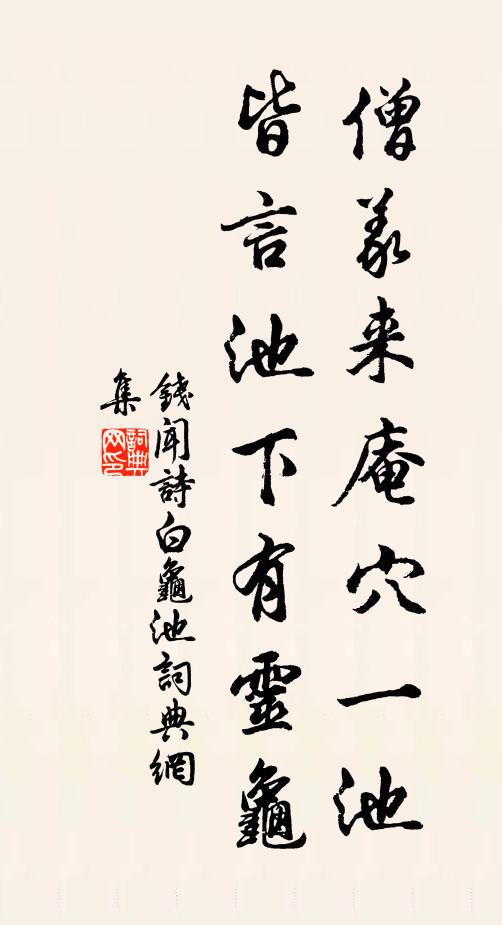 僧義来庵穴一池
皆言池下有靈龜
錢聞詩白龜池詞典網
集
詞典
网印